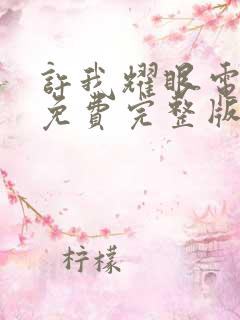 許我耀眼電
免費完整版
柠檬